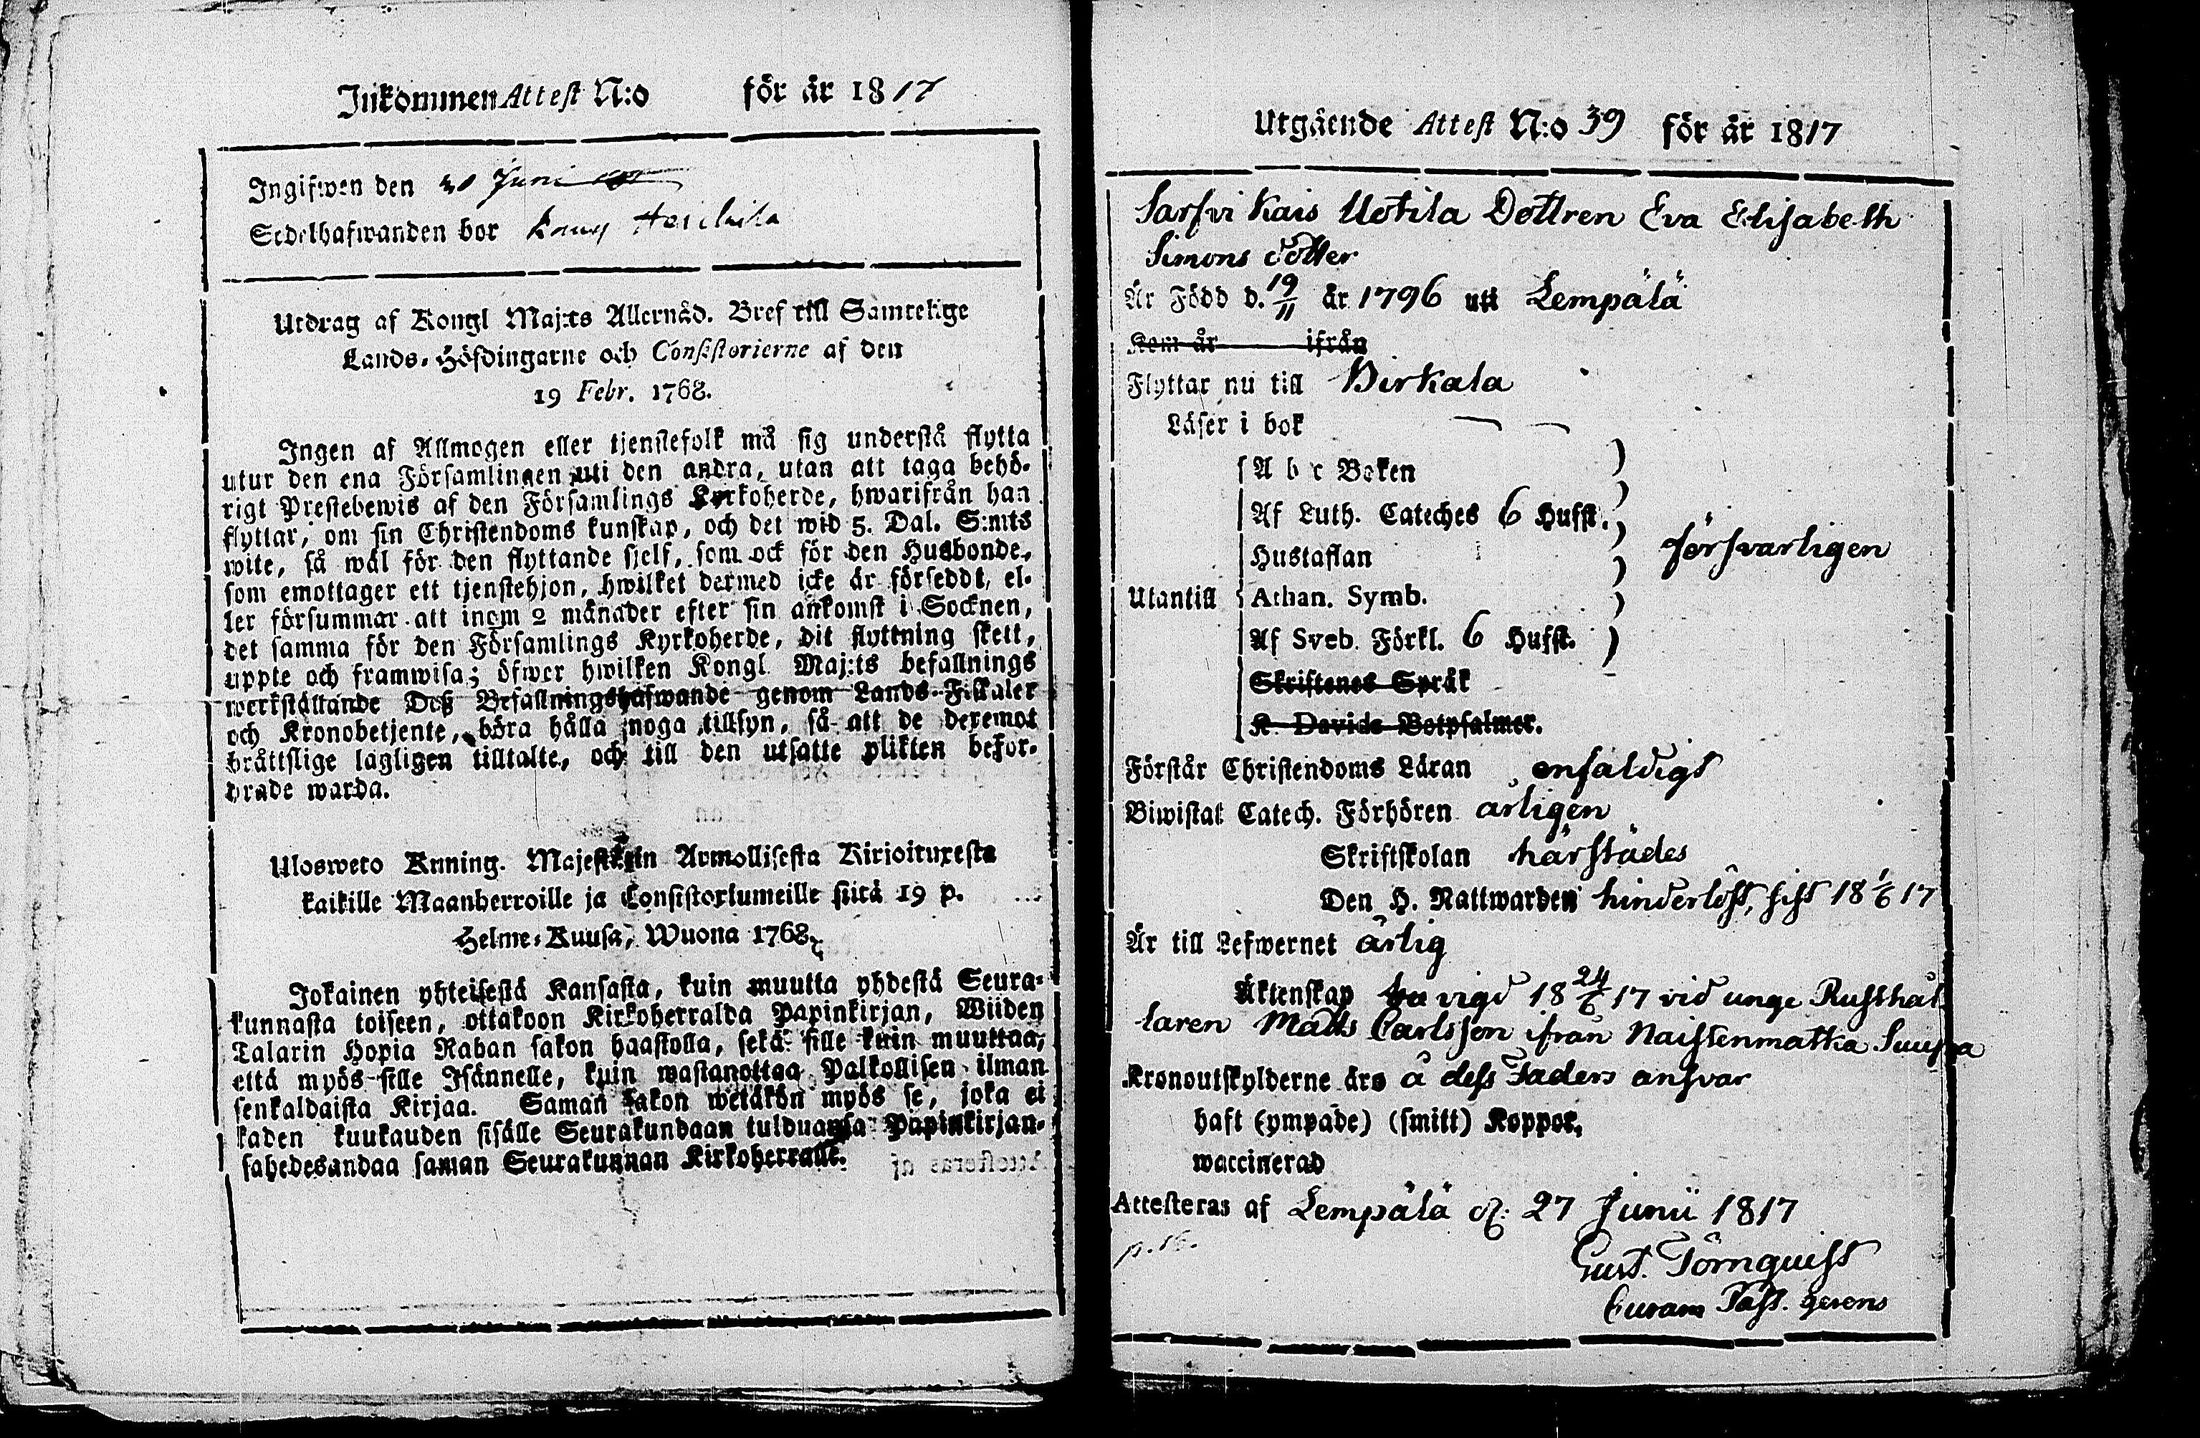 Inkommen Attest N:o för år 1817
Ingifwen den Juni
Sedelhafwanden bor
Utdrag af Kongl Maj:ts Allernåd. Bref till Samtelige
Lands-Höfdingarne och Consistorierne af den
19 Febr. 1768.
Ingen af Allmogen eller tjenstefolk må sig understå flytta
utur den ena Församlingen uti den andra, utan att taga behö-
rigt Prestebewis af den Församlings Kyrkoherde, hwarifrån han
flyttar, om sin Christendoms kunskap, och det wid 5. Dal. S:mts
wite, så wäl för den flyttande sjelf, som ock för den Husbonde,
som emottager ett tjenstehjon, hwilket dermed icke är försedt, el-
ler försummar att inom 2 månader efter sin ankomst i Socknen,
det samma för den Församlings Kyrkoherde, dit flyttning skett,
uppte och framwisa; öfwer hwilken Kongl Maj:ts befallnings
werkställande Deß Befallningshafwande genom Lands-Fiskaler
och Kronobetjente, böra hålla noga tillsyn, så att de deremot
bråttslige lagligen tilltalte, och till den utsatte plikten befor-
drade warda.
Ulosweto Kuning. Majestetin Armollisesta Kirjoituxesta
kaikille Maanherroille ja Consistoriumeille siitä 19 p.
Helme-Kuusa, Wuona 1768.
Jokainen yhteisestä Kansasta, kuin muutta yhdestä Seura-
kunnasta toiseen, ottakoon Kirkoherralda Papinkirjan, Wiiden
Talarin Hopia Rahan sakon haastolla, sekä sille kuin muuttaa,
että myös sille Isännelle, kuin wastanottaa Palkollisen ilman
senkaldaista Kirjaa. Saman sakon wetäkön myös se, joka ei
kaden kuukauden sisälle Seurakundaan tulduansa Papinkirjan-
sahedesandaa saman Seurakunnan Kirkoherralle.
Utgående Attest N:o 39 för år 1817
Sarfvi Kais Uotila Dottren Eva Elisabeth
Simons dotter
Är Född d. 19/11 år 1796 uti Lempälä
Kom år ifrån
Flyttar nu till Birkala
Läser i bok
A b c Boken
Af Luth. Cateches 6 Hufst.
Hustaflan
försvarligen
Utantill Athan. Symb.
Af Sveb. Förkl. 6 Hufst.
Skriftenes Språk
K. Davids Botpsalmer.
Förstår Christendoms Läran enfaldigt
Biwistat Catech. Förhören årligen
Skriftskolan härstädes
Den H. Nattwarden hinderlöst, sist 18 1/6 17
Är till Lefwernet ärlig
Äktenskap vigd 18 24/6 17 vid unge Rusthål
laren Matts Carlsson ifrån Naistenmatka Suuppa
Kronoutskylderne äro å dess Faders ansvar
haft (ympade) (smitt) Koppor,
waccinerad
Attesteras af Lempälä d. 27 Junii 1817
p. 16.
Gust. Törnquist
Curam Past. gerens